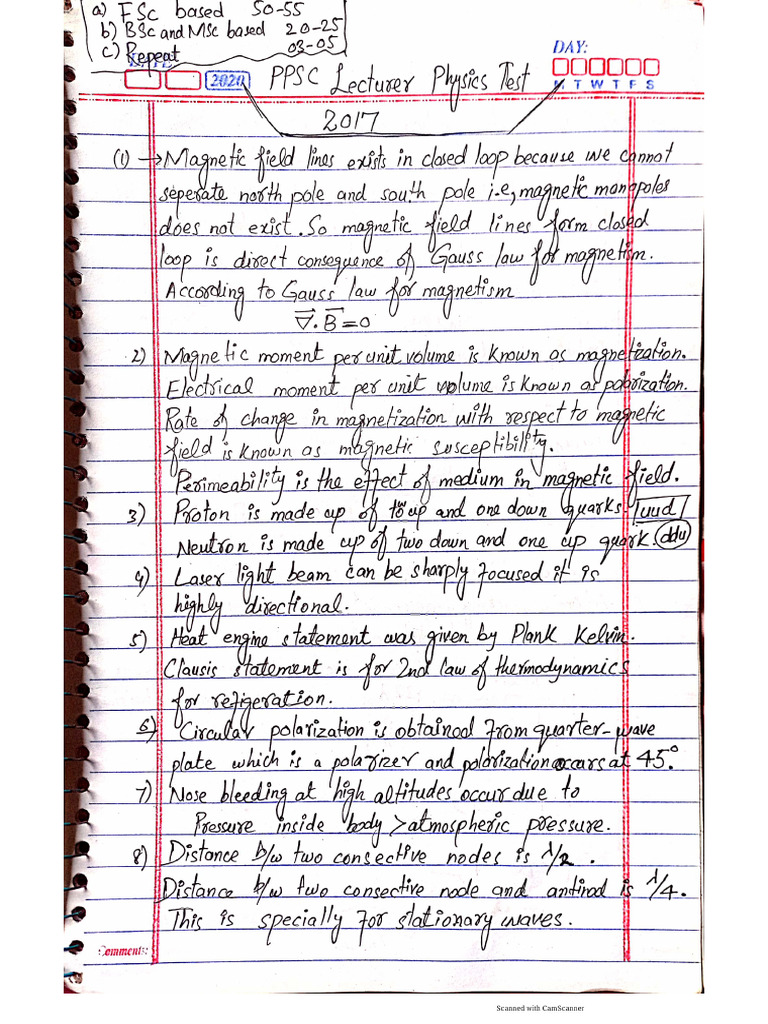 a) FSc based 50-55
b) BSc and MSc based 20-25
c) Repeat 03-05
DAY:
2020
PPSC Lecturer Physics Test
M T W T F S
2017
(1) → Magnetic field lines exists in closed loop because we cannot
seperate north pole and south pole i.e, magnetic monopoles
does not exist. So magnetic field lines form closed
loop is direct consequence of Gauss law for magnetism.
According to Gauss law for magnetism
∇⃗.B⃗=0
2) Magnetic moment per unit volume is known as magnetization.
Electrical moment per unit volume is known as polarization.
Rate of change in magnetization with respect to magnetic
field is known as magnetic susceptibility.
Perimeability is the effect of medium in magnetic field.
3) Proton is made up of two up and one down quarks. uud
Neutron is made up of two down and one up quark. ddu
4) Laser light beam can be sharply focused it is
highly directional.
5) Heat engine statement was given by Plank Kelvin.
Clausis statement is for 2nd law of thermodynamics
for refigeration.
6) Circular polarization is obtained from quarter-wave
plate which is a polarizer and polarization occurs at 45°
7) Nose bleeding at high altitudes occur due to
Pressure inside body > atmospheric pressure.
8) Distance b/w two consective nodes is λ/2 .
Distance b/w two consective node and antinod is λ/4.
This is specially for stationary waves.
Comments:
Scanned with CamScanner